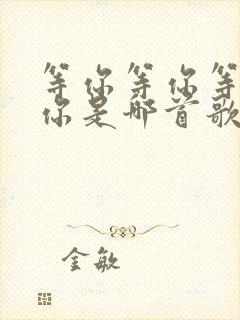 等你等你等
你是哪首歌
金敏